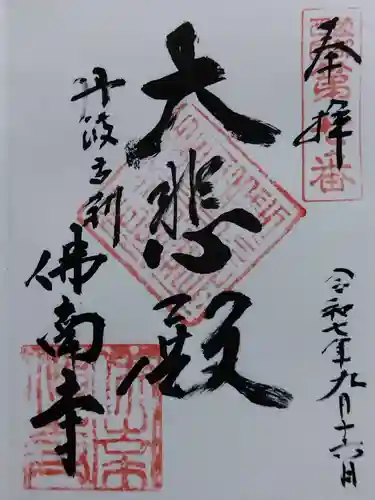 奉拝
大悲殿
丹波古刹
佛南寺
令和七年九月十六日